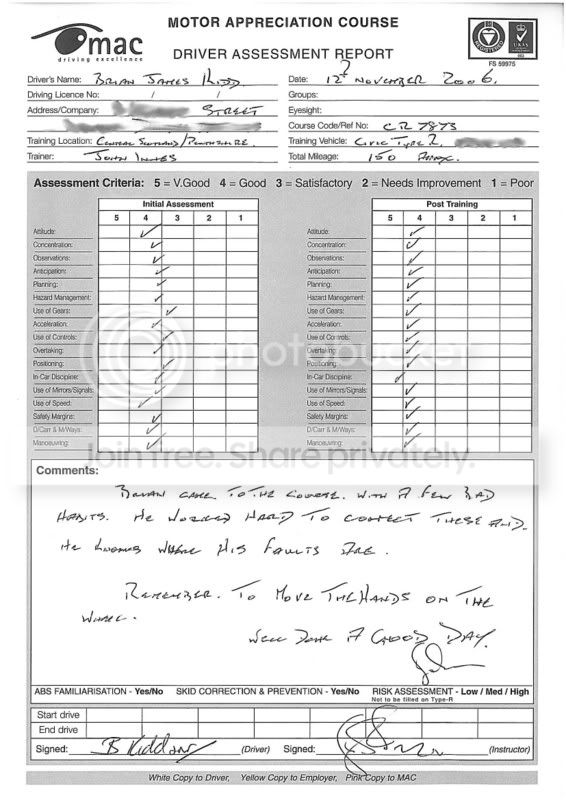 MOTOR APPRECIATION COURSE
mac
driving excellence
DRIVER ASSESSMENT REPORT
REGISTERED
UKAS
FS 59975
Driver's Name: BRIAN JAMES KIDD
Date: 12th NOVEMBER 2006.
Driving Licence No: / /
Groups:
Address/Company: STREET
Eyesight:
Course Code/Ref No: CR 7873
Training Location: CENTRAL SCOTLAND/PERTHSHIRE.
Training Vehicle: CIVIC TYPE R.
Trainer: JOHN INNES
Total Mileage: 150 APPROX.
Assessment Criteria: 5 = V.Good 4 = Good 3 = Satisfactory 2 = Needs Improvement 1 = Poor
Initial Assessment
Post Training
5 4 3 2 1
5 4 3 2 1
Attitude: Attitude:
Concentration: Concentration:
Observations: Observations:
Anticipation: Anticipation:
Planning: Planning:
Hazard Management: Hazard Management:
Use of Gears: Use of Gears:
Acceleration: Acceleration:
Use of Controls: Use of Controls:
Overtaking: Overtaking:
Positioning: Positioning:
In-Car Discipline: In-Car Discipline:
Use of Mirrors/Signals: Use of Mirrors/Signals:
Use of Speed: Use of Speed:
Safety Margins: Safety Margins:
D/Carr & M/Ways: D/Carr & M/Ways:
Manoeuvring: Manoeuvring:
photobucket
Join free. Share privately.
Comments:
BRIAN CAME TO THE COURSE. WITH A FEW BAD
HABITS. HE WORKED HARD TO CORRECT THESE AND.
HE KNOWS WHERE HIS FAULTS ARE.
REMEMBER. TO MOVE THE HANDS ON THE
WHEEL.
WELL DONE A GOOD DAY.
ABS FAMILIARISATION - Yes/No SKID CORRECTION & PREVENTION - Yes/No RISK ASSESSMENT - Low / Med / High
Not to be filled on Type-R
Start drive
End drive
Signed: (Driver) Signed: (Instructor)
White Copy to Driver, Yellow Copy to Employer, Pink Copy to MAC